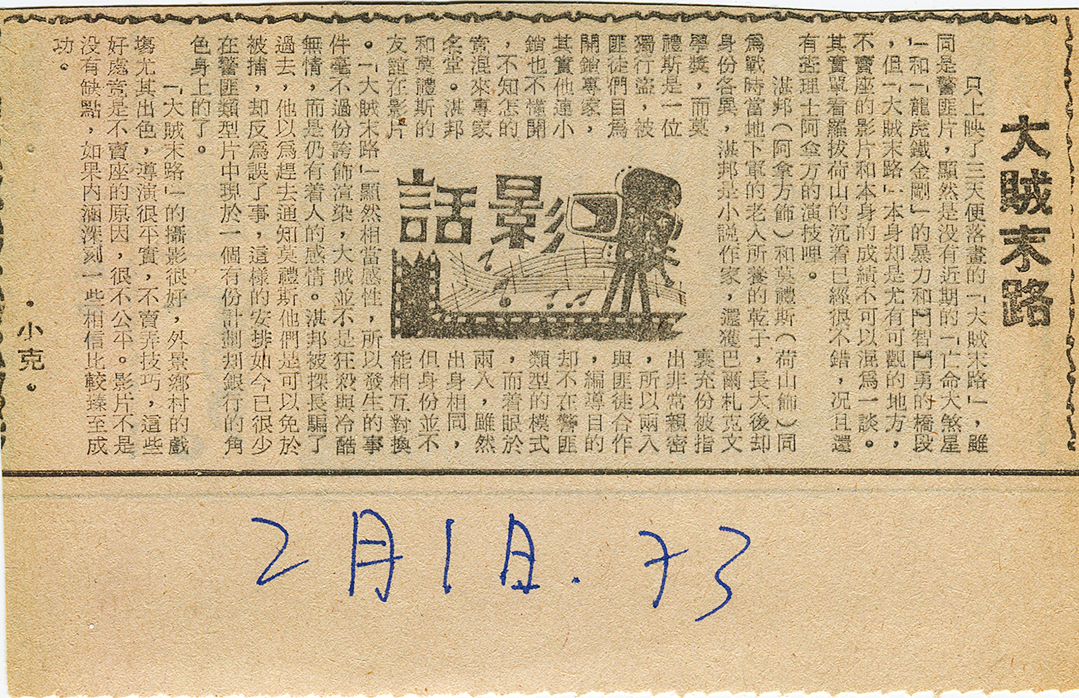 大賊末路
只上映了三天便落畫的「大賊末路」，雖
同是警匪片，顯然是没有近期的「亡命大煞星
」和「龍虎鐵金剛」的暴力和鬥智鬥勇的橋段
，但「大賊末路」本身却是尤有可觀的地方，
不賣座的影片和本身的成績不可以混爲一談。
其實單看羅拔荷山的沉着已經很不錯，况且還
有亞理士阿拿方的演技哩。
湛邦（阿拿方飾）和莫禮斯（荷山飾）同
爲戰時當地下軍的老人所養的乾子，長大後却
身份各異，湛邦是小説作家，還獲巴爾札克文
學獎，而莫
禮斯是一位
獨行盜，被
匪徒們目爲
開鎖專家，
其實他連小
鎖也不懂開
，不知怎的
竟混來專家
名堂。湛邦
和莫禮斯的
友誼在影片
影話
裏充份被指
出非常親密
，所以兩人
與匪徒合作
，編導目的
却不在警匪
類型的模式
，而着眼於
兩人，雖然
出身相同，
但身份並不
能相互對換
。「大賊末路」顯然相當感性，所以發生的事
件毫不過份誇飾渲染，大賊並不是狂殺與冷酷
無情，而是仍有着人的感情。湛邦被探長騙了
過去，他以爲趕去通知莫禮斯他們是可以免於
被捕，却反爲誤了事，這樣的安排如今已很少
在警匪類型片中現於一個有份計劃刧銀行的角
色身上的了。
「大賊末路」的攝影很好，外景鄉村的戲
塲尤其出色，導演很平實，不賣弄技巧，這些
好處竟是不賣座的原因，很不公平。影片不是
没有缺點，如果内涵深刻一些相信比較臻至成
功。
・小克・
2月1日．73